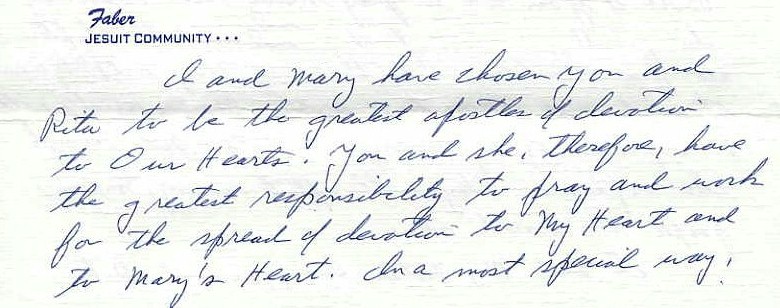 Faber
JESUIT COMMUNITY...
I and Mary have chosen you and
Rita to be the greatest apostles of devotion
to Our Hearts. You and she, therefore, have
the greatest responsibility to pray and work
for the spread of devotion to My Heart and
to Mary's Heart. In a most special way,